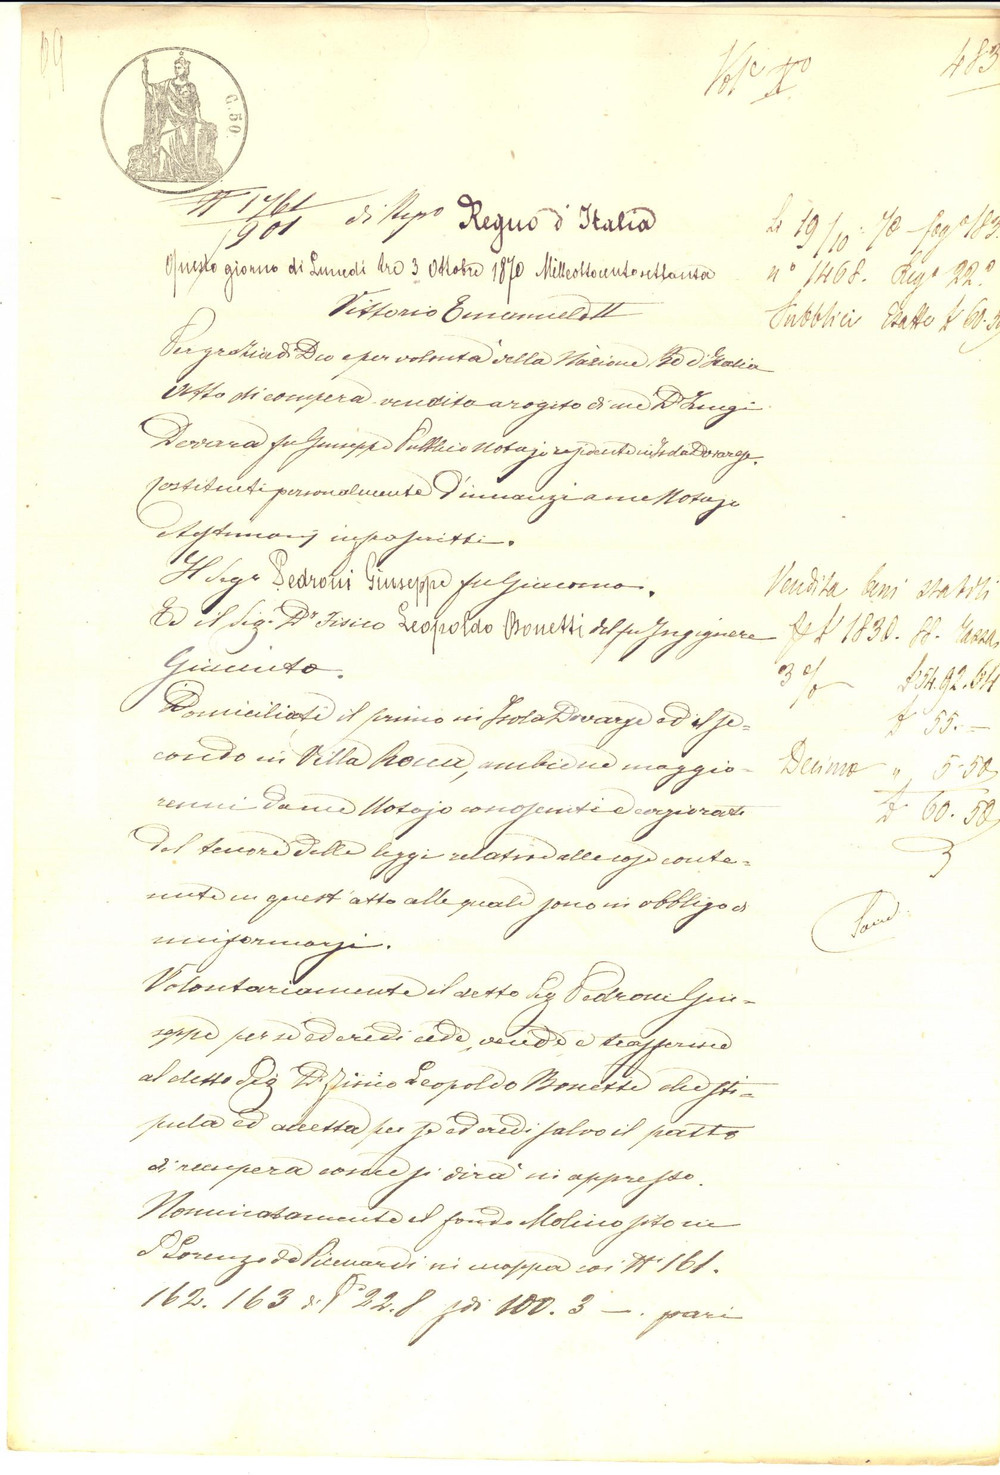 69
C. 50.
Vol.e Xo
483
N 1761
1901
di Repo Regno d'Italia
Questo giorno di Lunedi tre 3 Ottobre 1870 Milleottocentosettanta
Vittorio Emanuele II
Per grazia di Dio e per volontà della Nazione Re d'Italia
Atto di compera vendita a rogito di me Dr Luigi
Dovara fu Giuseppe Pubblico Notajo residente in Isola Dovarese.
Costituiti personalmente d'innanzi a me Notajo
e testimonj infrascritti.
Il Sigr Pedroni Giuseppe fu Giacomo.
Ed il Sig. Dr Fisico Leopoldo Bonetti del fu Ingegnere
Giacinto.
Domiciliati il primo in Isola Dovarese ed il se-
condo in Villa Rocca, ambidue maggio-
renni da me Notajo conosciuti e cerziorati
del tenore delle leggi relative alle cose conte-
nute in quest'atto alle quali sono in obbligo di
uniformarsi.
Volontariamente il detto Sig Pedroni Giu-
seppe per sé ed eredi cede, vende e trasferisce
al detto Sig Dr Fisico Leopoldo Bonetti che sti-
pula ed accetta per sé ed eredi salvo il patto
di recupera come si dirà in appresso.
Nominatamente il fondo Molino sito in
S. Lorenzo de Picenardi in mappa coi N 161.
162. 163 di Pe 22.8 sdi 100.3 —. pari
Li 19/10 70 fogo 183.
no 1468. Rego 22o
Pubblici Esatte £ 60.50
Vendita beni stabili
fe £ 1830. 88. Tassa
3 % £ 54.92.64
£ 55.—
Decimo " 5.50
£ 60.50